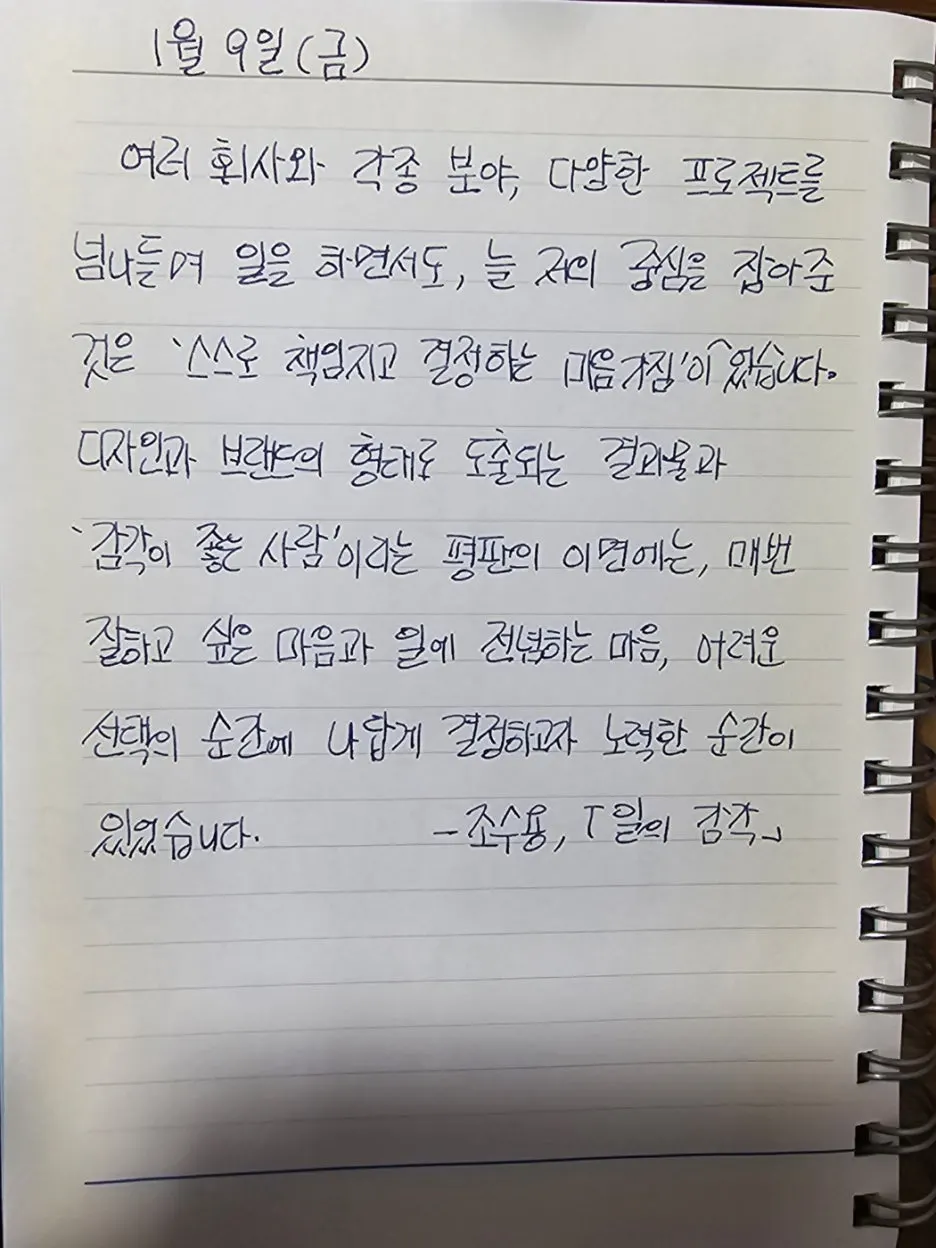 1월 9일(금)
여러 회사와 각종 분야, 다양한 프로젝트를
넘나들며 일을 하면서도, 늘 저의 중심을 잡아준
것은 '스스로 책임지고 결정하는 마음가짐'이었습니다.
디자인과 브랜드의 형태로 도출되는 결과물과
'감각이 좋은 사람'이라는 평판의 이면에는, 매번
잘하고 싶은 마음과 일에 전념하는 마음, 어려운
선택의 순간에 나답게 결정하고자 노력한 순간이
있었습니다. -조수용, 「일의 감각」